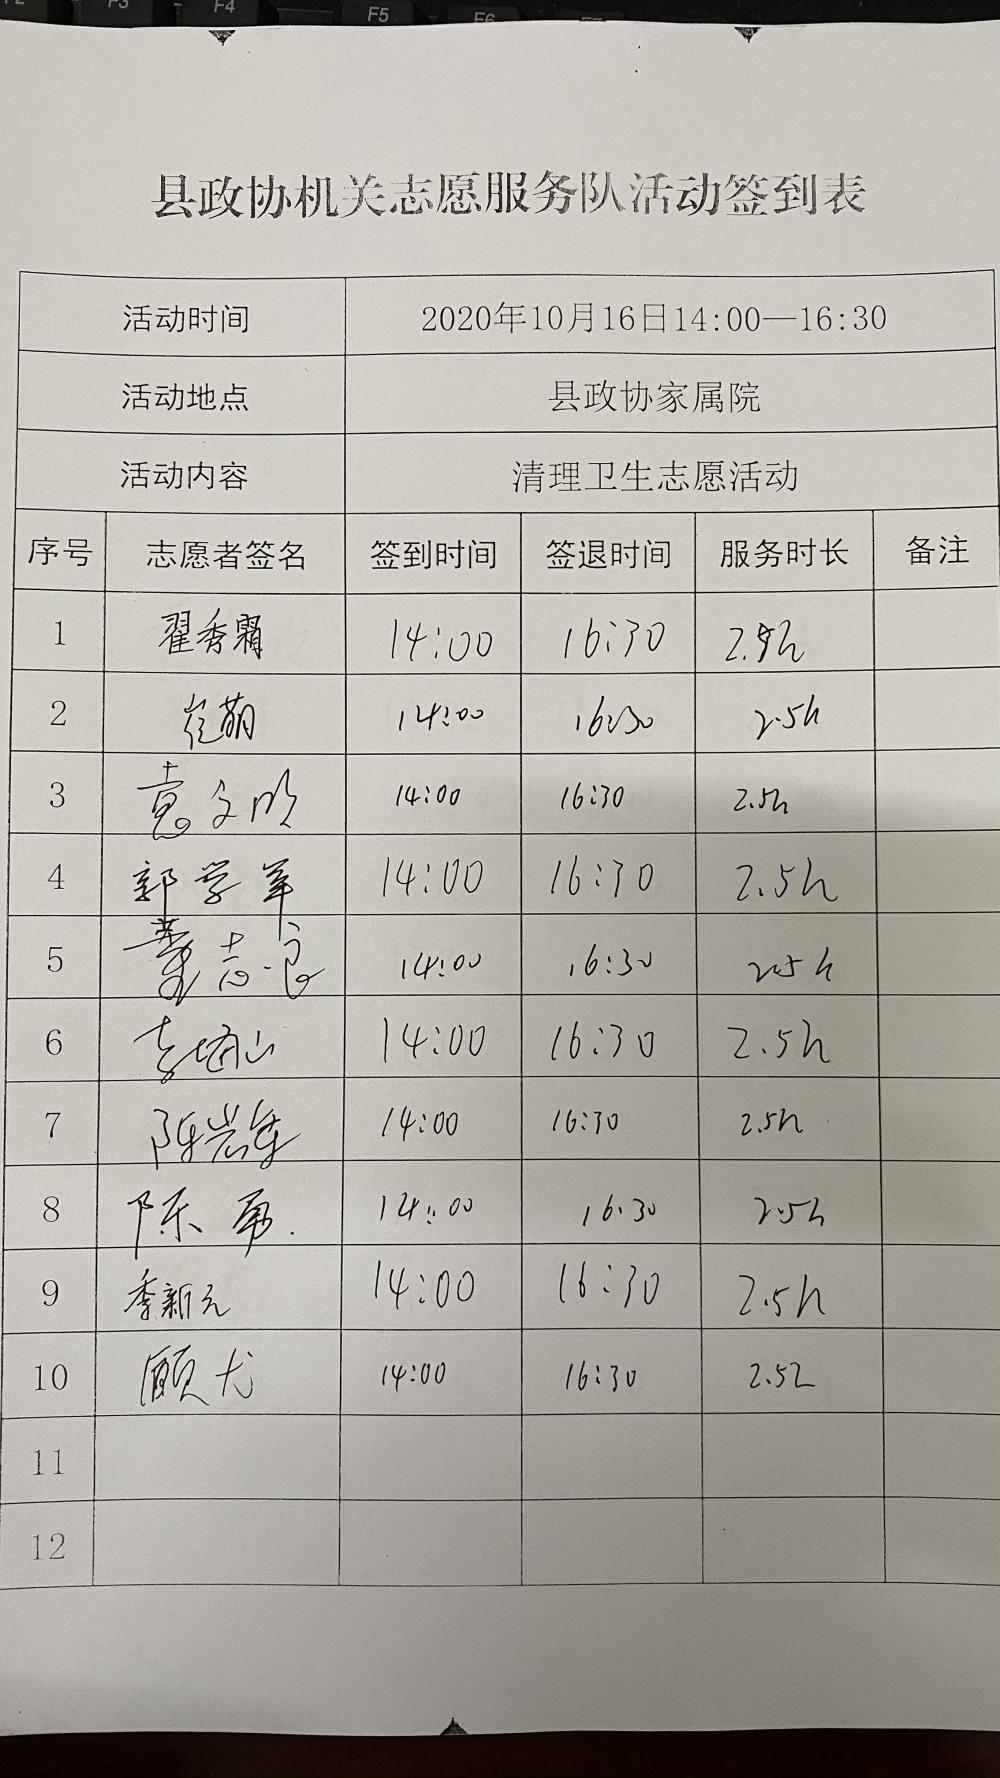 F3 F4 F5 F6
县政协机关志愿服务队活动签到表
活动时间 2020年10月16日14:00—16:30
活动地点 县政协家属院
活动内容 清理卫生志愿活动
序号 志愿者签名 签到时间 签退时间 服务时长 备注
1 翟秀霜 14:00 16:30 2.5h
2 崔萌 14:00 16:30 2.5h
3 袁文明 14:00 16:30 2.5h
4 郭学军 14:00 16:30 2.5h
5 董志良 14:00 16:30 2.5h
6 14:00 16:30 2.5h
7 陈岩 14:00 16:30 2.5h
8 陈勇 14:00 16:30 2.5h
9 季新元 14:00 16:30 2.5h
10 顾 14:00 16:30 2.5h
11
12